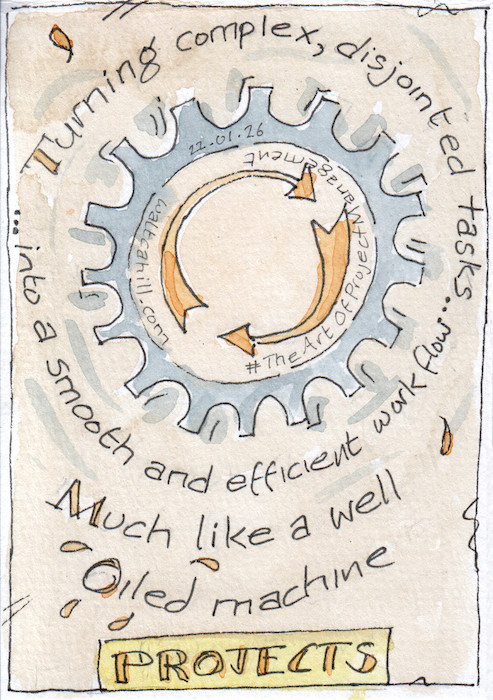 Turning complex, disjointed tasks...
...into a smooth and efficient work flow
Much like a well
Oiled machine
PROJECTS
22.01.26
waltcahill.com
#TheArtOfProjectManagement